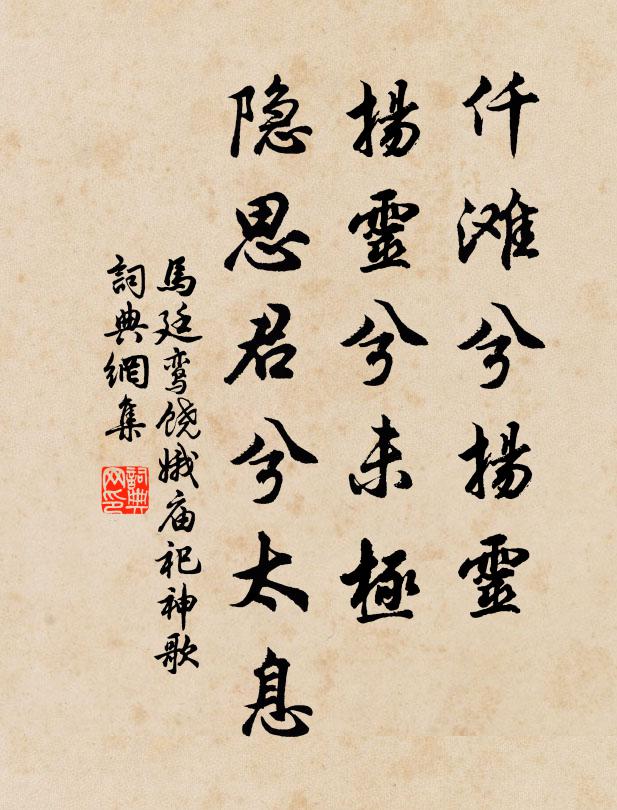 仟滩兮揚靈
揚靈兮未極
隐思君兮太息
馬廷鸾饶娥庙祀神歌
詞典網集
詞典
网印